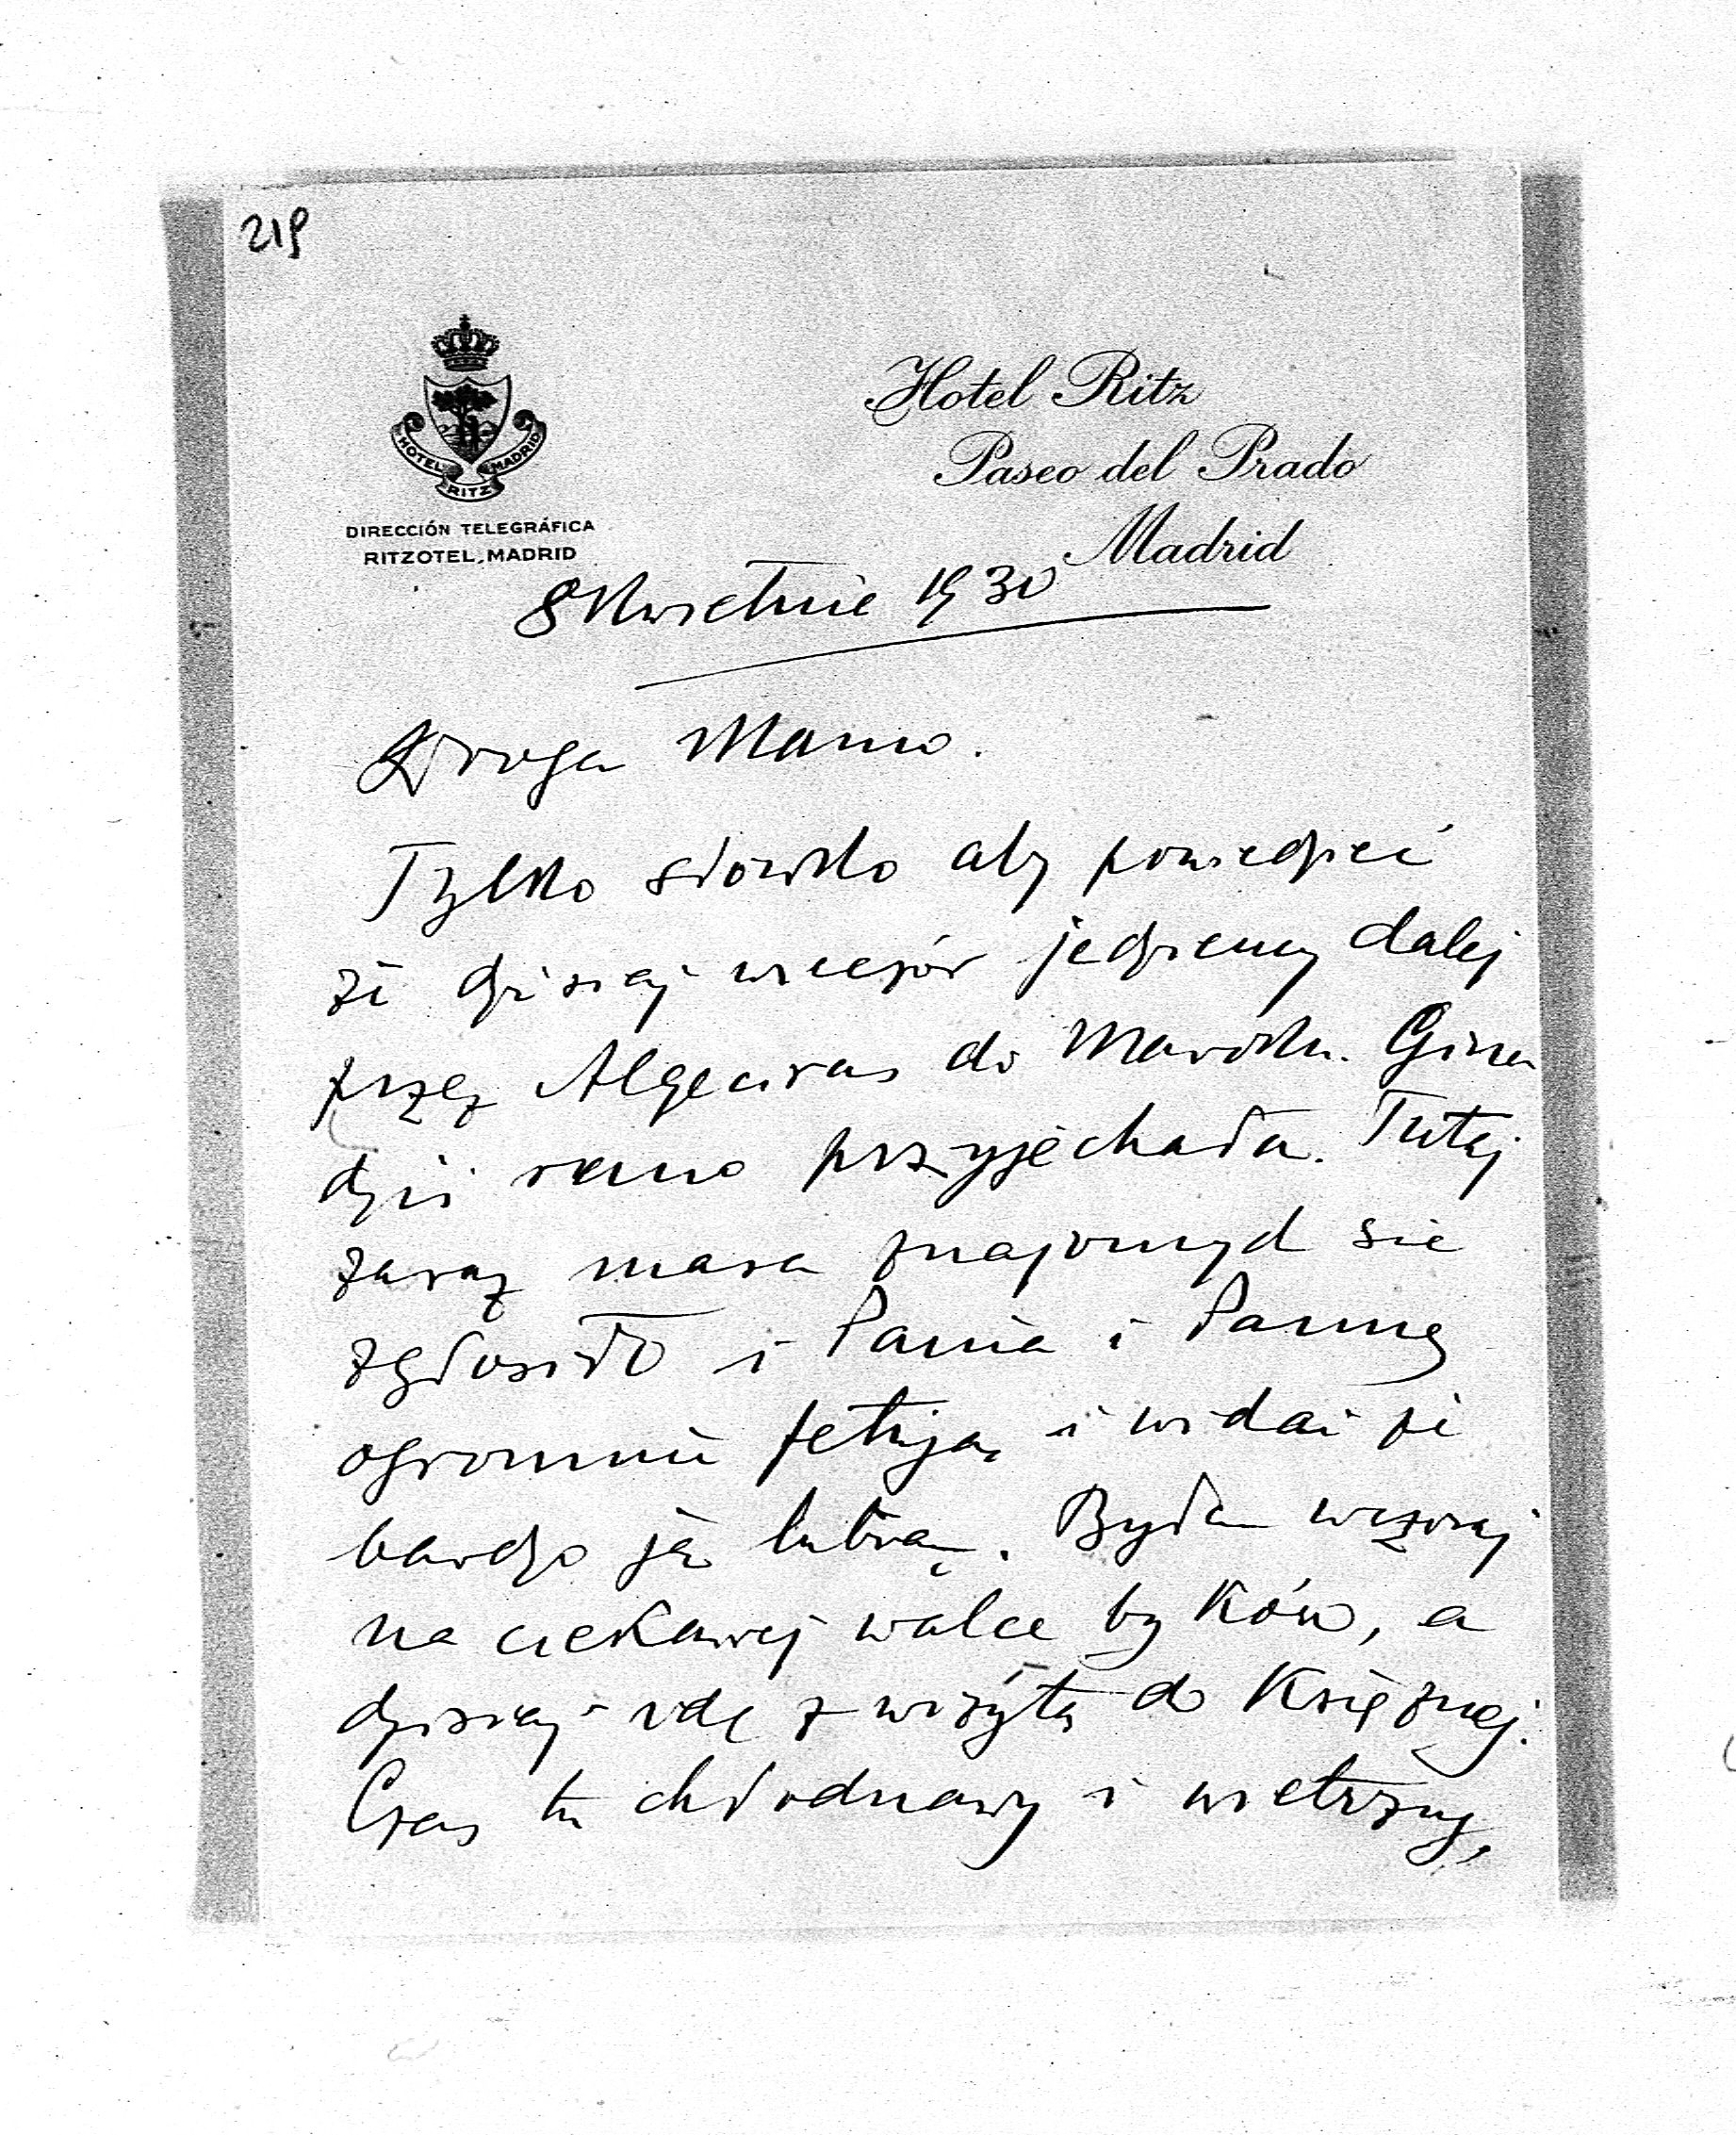 219
HOTEL RITZ MADRID
DIRECCIÓN TELEGRÁFICA
RITZOTEL, MADRID
Hotel Ritz
Paseo del Prado
Madrid
8 Kwietnia 1930
Droga Mamo.
Tylko słówko aby powiedzieć
że dzisiaj wieczór jedziemy dalej
przez Algeciras do Marokka. Gina
dziś rano przyjechała. Tutaj
zaraz masa znajomych się
zgłosiło i Panią i Pannę
ogromnie fetują i widać że
bardzo ją lubią. Byłam wczoraj
na ciekawej walce byków, a
dzisiaj idę z wizytą do Księżnej.
Czas tu chłodnawy i wietrzny,